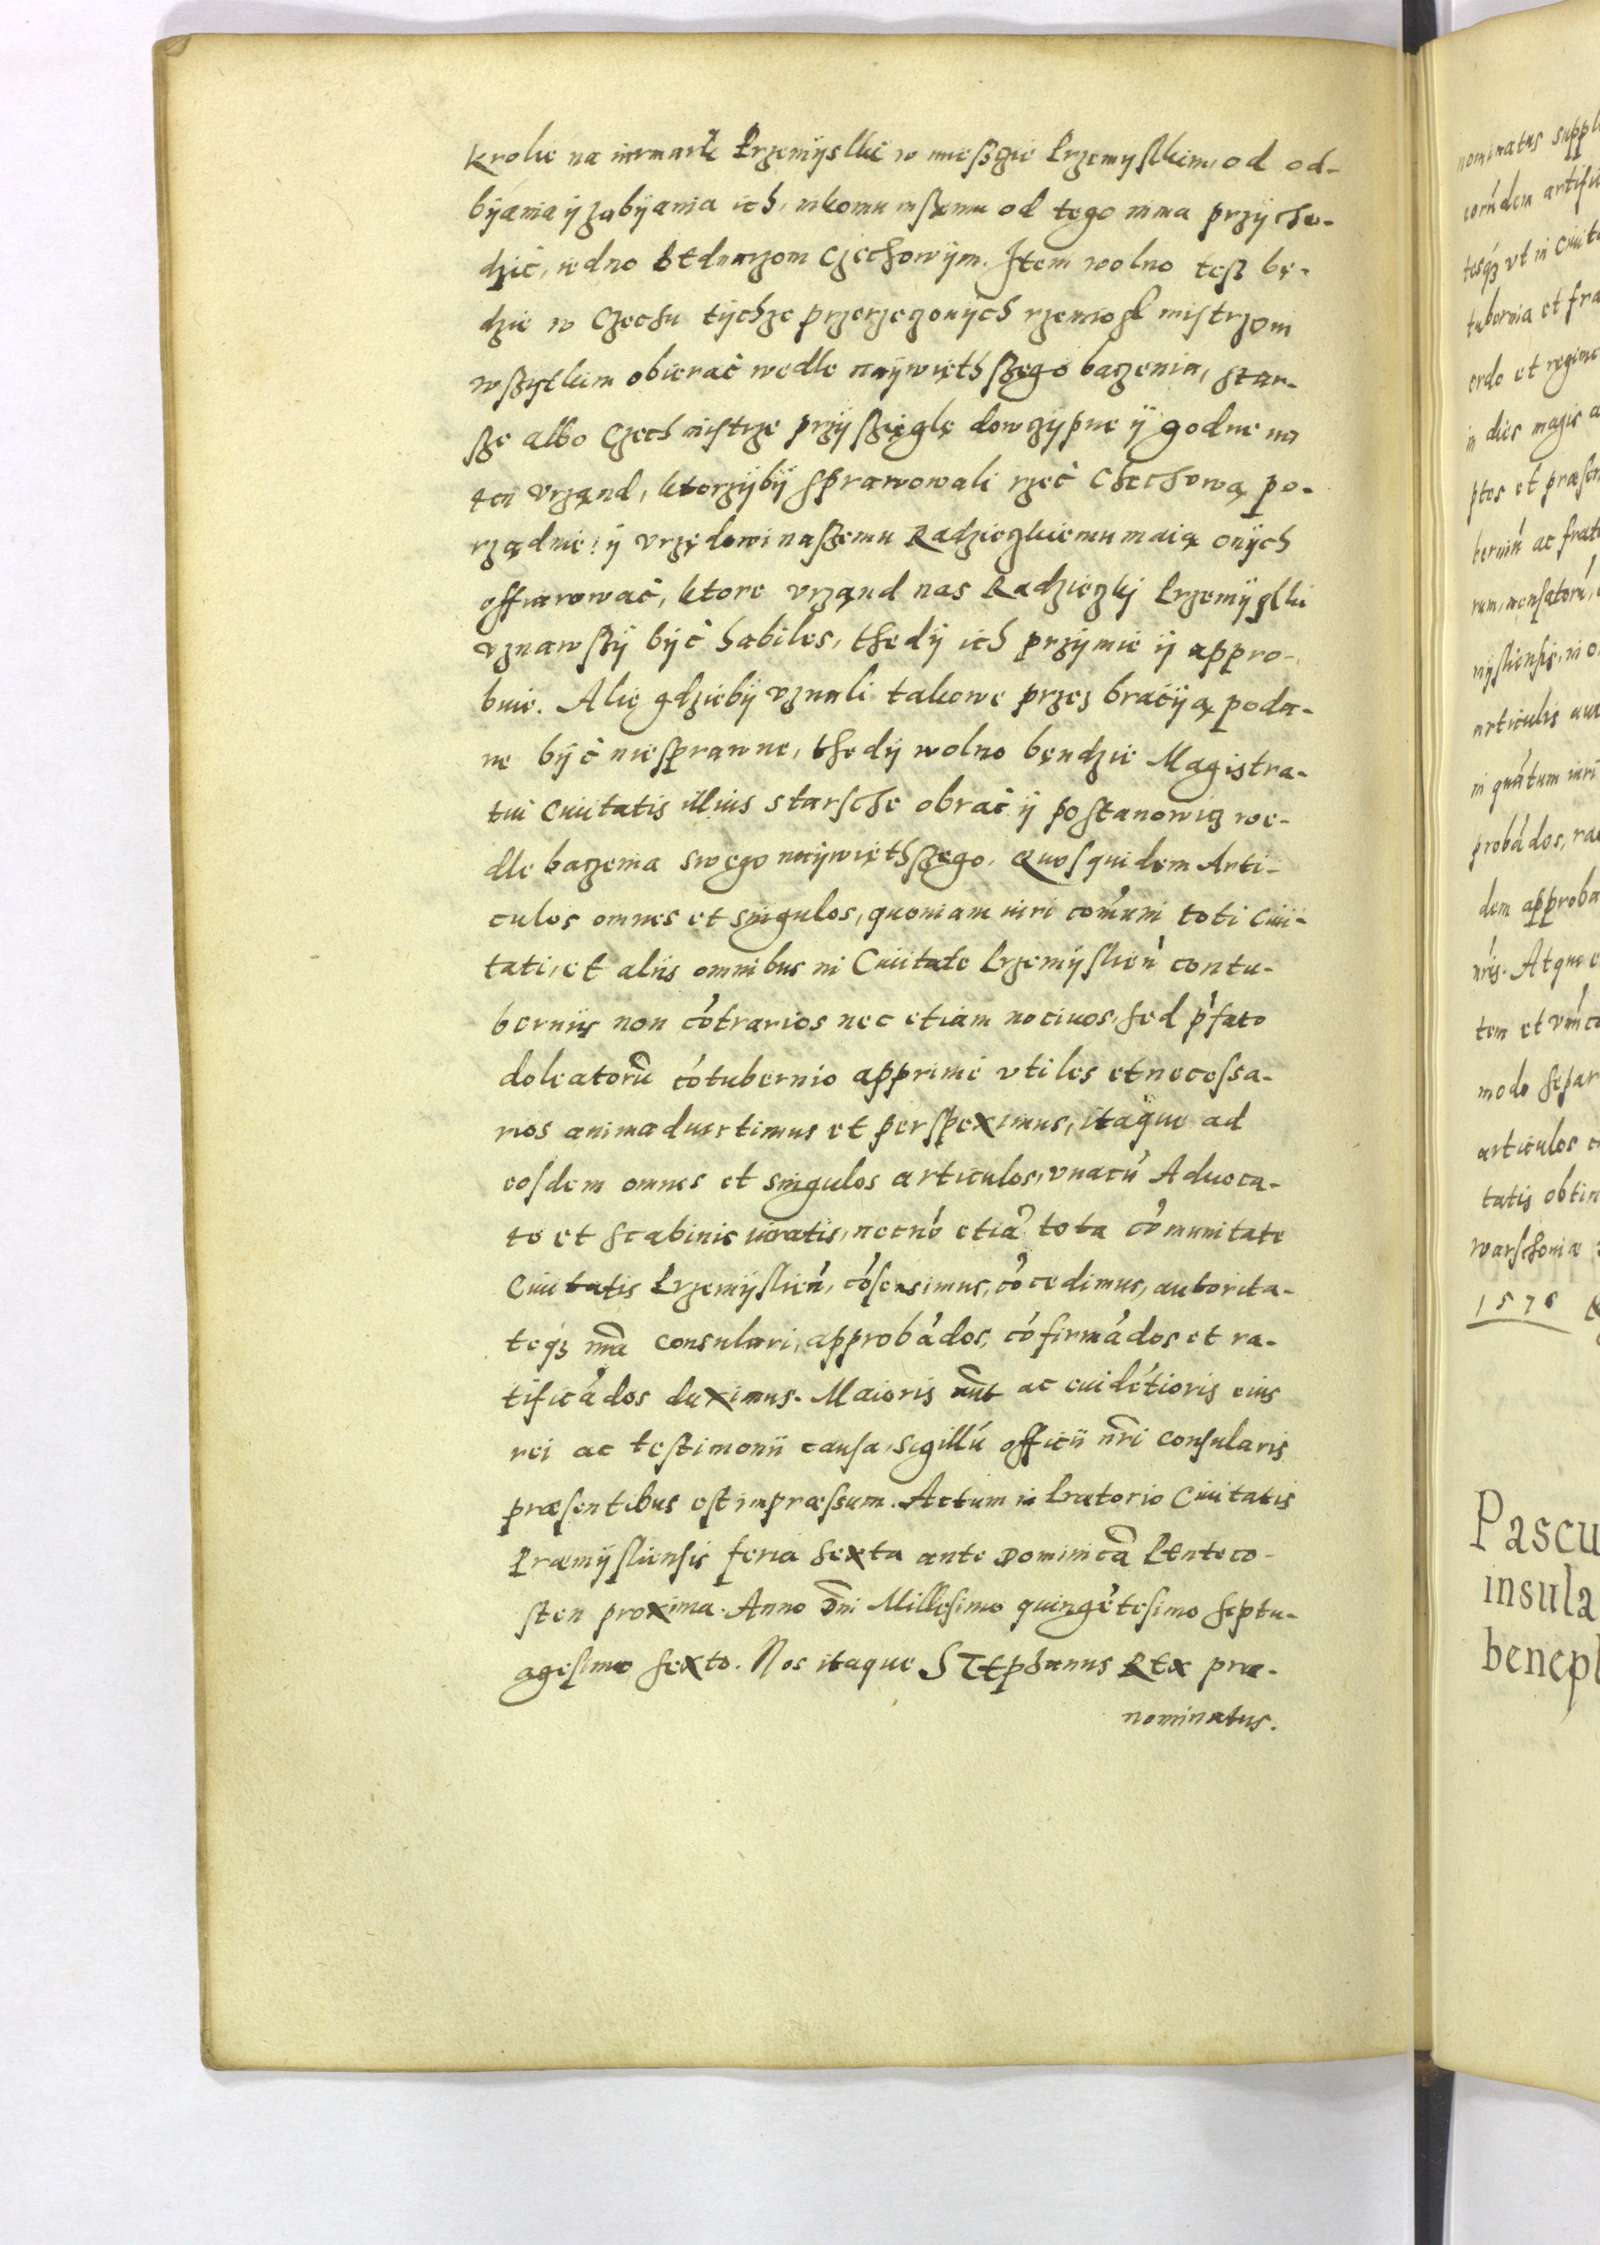 krolie na iarmark Przemÿslkiē w mießczie Przemyslkim, od od-
bÿania ÿ zabÿania ich, nikomu inßemu od tego nima przÿcho-
dzić, iedno Bednarzom Czechowÿm. Item wolno tesz bę-
dzie w Czechu tÿchze przerzezonÿch rzemiosl mistrzom
wszÿtkim obierać wedle naÿwięthszego baczenia, star-
sze albo Czech mistrze przÿsziegłe dowczÿpne ÿ godne na
ten vrzand, ktorzÿbÿ sprawowali rzecz Chechową po-
rządnie: ÿ vrzędowi naszemu Radzieczkiemu maią onÿch
offiarować, ktore vrzand nas Radzieczkj Przemÿslki
vznawszÿ bÿć habiles, thedÿ ich przÿmie ÿ appro-
buie. Alie gdziebÿ vznali takowe przez bracÿą poda-
ne bÿć niesprawne, thedÿ wolno bęndzie Magistra-
tui Ciuitatis illius starsche obrać ÿ postanowicz we-
dle baczenia swego naÿwięthszego. Quosquidem Arti-
culos omnes et singulos, quoniam iuri cōmuni toti Ciui-
tati, et aliis omnibus in Ciuitate Przemÿslień contu-
berniis non cōtrarios nec etiam nociuos, sed p̄fato
doleatorū cōtubernio apprime vtiles et necessa-
rios animaduertimus et perspeximus, itaque ad
eosdem omnes et singulos articulos, vnacū Aduoca-
to et scabinis iuratis, necnō etiā tota cōmunitate
Ciuitatis Przemÿslień, cōsensimus, cōcedimus, autorita-
teq₃ nr̄a consulari, approbādos, cōfirmādos et ra-
tificādos duximus. Maioris aūt ac euidētioris eius
rei ac testimonii causa, sigillū officii nr̄i consularis
præsentibus est impræssum. Actum in Prætorio Ciuitatis
Præmÿsliensis feria sexta ante Dominicā Penteco-
sten proxima. Anno Dn̄i Millesimo quingētesimo septu-
agesimo sexto. Nos itaque STEphanus REx præ-
nominatus.
nominatus suppl
eorūdem artific
tesq₃ vt in Ciuita
tubernia et fra
ordo et regime
in dies magis a
ptos et præsen
berniū ac frate
rum, mensatorū,
mÿsliensis, in o
articulis au
in quātum iuri
probādos, ra
dem approba
nr̄is. Atque e
tem et
modo separ
articulos
tatis obtin
Warschouiæ
1576
Pascu
insula
benepl